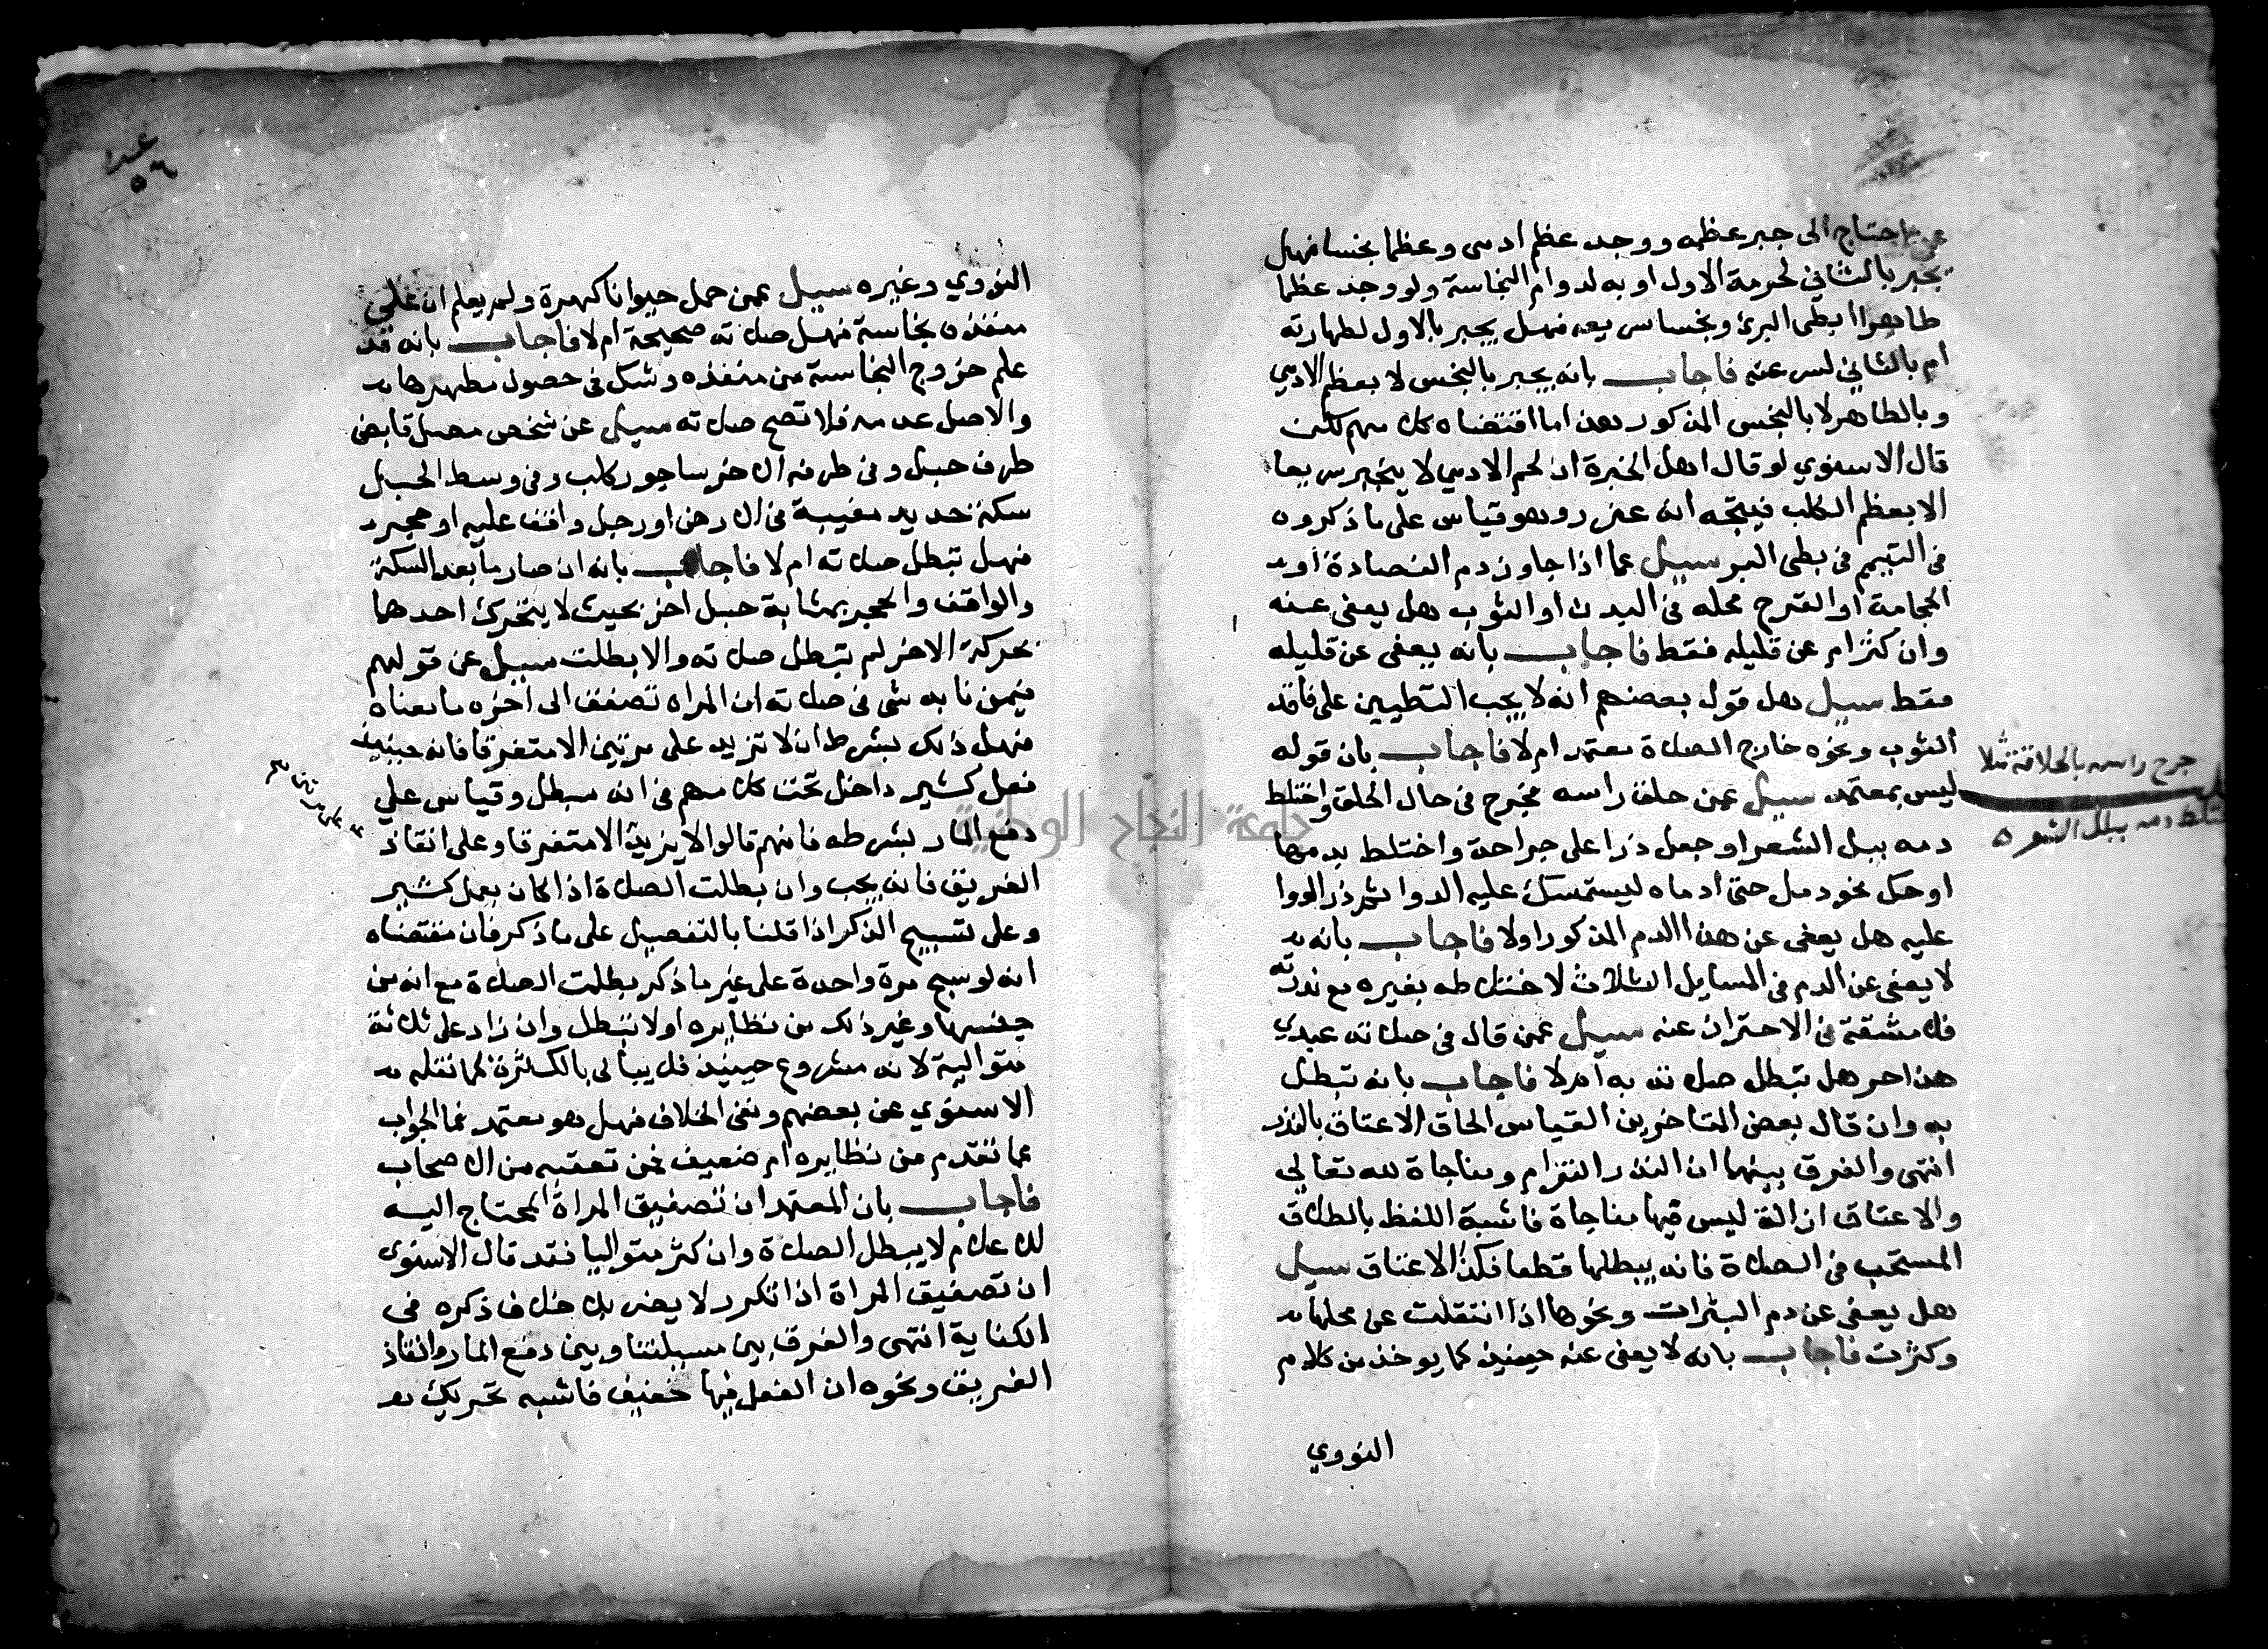 عمن احتاج الى جبر عظمه ووجد عظم ادمى وعظما نجسا فهل
يجبر بالثاني لحرمة الاول او به لدوام النجاسة ولو وجد عظما
طاهرا ابطى البرئ ونجسا سريعه فهل يجبر بالاول لطهارته
ام بالثاني لسرعته فاجاب بانه يجبر بالنجس لا بعظم الادمي
وبالطاهر لا بالنجس المذكور هذا ما اقتضاه كلامهم لكن
قال الاسنوي لو قال اهل الخبرة ان لحم الادمي لا ينجبر سريعا
الا بعظم الكلب فيتجه انه عذر وهو قياس على ما ذكروه
فى التيمم فى بطى البر سيل عما اذا جاوز دم الفصادة او
الحجامة او القرح محله فى البدن او الثوب هل يعفى عنه
وان كثر ام عن قليله فقط فاجاب بانه يعفى عن قليله
فقط سيل هل قول بعضهم انه لا يجب التطيين على فاقد
الثوب ونحوه خارج الصلاة معتمد ام لا فاجاب بان قوله
جرح راسه بالحلاقة مثلا
ليس بمعتمد سيل عمن حلق راسه فجرح فى حال الحلق واختلط
اختلط دمه ببلل الشعر ه
دمه ببل الشعر او جعل ذرا على جراحة واختلط بدمها
او حك نحو دمل حتى ادماه ليستمسك عليه الدوا ثم ذر الدوا
عليه هل يعفى عن هذا الدم المذكور اولا فاجاب بانه
لا يعفى عن الدم فى المسايل الثلاث لاختلاطه بغيره مع ندرته
فلا مشقة فى الاحتراز عنه سيل عمن قال فى صلاته عبدي
هذا حر هل تبطل صلاته به ام لا فاجاب بانه تبطل
به وان قال بعض المتاخرين القياس الحاق الاعتاق بالنذر
انتهى والفرق بينهما ان النذر التزام ومناجاة لله تعالى
والاعتاق ازالة ليس فيها مناجاة فاشبه اللفظ بالطلاق
المستحب فى الصلاة فانه يبطلها قطعا فكذا الاعتاق سيل
هل يعفى عن دم البثرات ونحوها اذا انتقلت عن محلها
وكثرت فاجاب بانه لا يعفى عنه حينيذ كما يوخذ من كلام
النووي
النووي وغيره سيل عمن حمل حيوانا كهرة ولم يعلم ان على
منفذه نجاسة فهل صلاته صحيحة ام لا فاجاب بانه قد
علم خروج النجاسة من منفذه وشك فى حصول مطهرها
والاصل عدمه فلا تصح صلاته سيل عن شخص مصل قابض
طرف حبل وفى طرفه الاخر ساجور كلب وفى وسط الحبل
سكة حديد مغيبة فى الارض او رجل واقف عليه او حجر
فهل تبطل صلاته ام لا فاجاب بانه ان صار ما بعد السكة
والواقف والحجر بمثابة حبل اخر بحيث لا يتحرك احدها
بحركة الاخر لم تبطل صلاته والا بطلت سيل عن قولهم
فيمن نابه شى فى صلاته ان المراه تصفق الى اخره ما معناه
فهل ذلك بشرط ان لا تزيد على مرتين الا متفرقا فانه حينيذ
فعل كثير داخل تحت كلامهم فى انه مبطل وقياس على
دفع المار بشرطه فانهم قالوا لا يزيد الا متفرقا وعلى انقاذ
الغريق فانه يجب وان بطلت الصلاة اذا كان بعمل كثير
وعلى تسبيح الذكر اذا قلنا بالتفصيل على ما ذكر فان مقتضاه
انه لو سبح مرة واحدة على غير ما ذكر بطلت الصلاة مع انه من
جنسها وغير ذلك من نظايره اولا تبطل وان زاد على ثلاثة
متوالية لانه مشروع حينيذ فلا يبالى بالكثرة كما نقله
الاسنوي عن بعضهم ونفى الخلاف فهل هو معتمد فما الجواب
عما تقدم من نظايره ام ضعيف فمن تعقبه من الاصحاب
فاجاب بان المعتمد ان تصفيق المراة المحتاج اليه
للاعلام لا يبطل الصلاة وان كثر متواليا فقد قال الاسنوى
ان تصفيق المراة اذا تكرر لا يضر بلا خلاف ذكره فى
الكفاية انتهى والفرق بين مسيلتنا وبين دفع المار وانقاذ
الغريق ونحوه ان الفعل فيها خفيف فاشبه تحريك